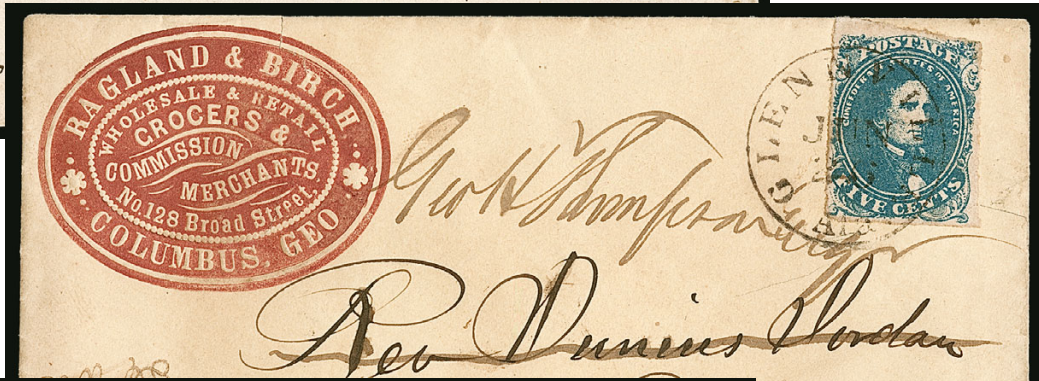 RAGLAND & BIRCH
WHOLESALE & RETAIL
GROCERS &
COMMISSION
MERCHANTS.
No. 128 Broad Street.
COLUMBUS, GEO.
POSTAGE
CONFEDERATE STATES OF AMERICA
FIVE CENTS
Geo H Thompson
Rev Junius Jordan